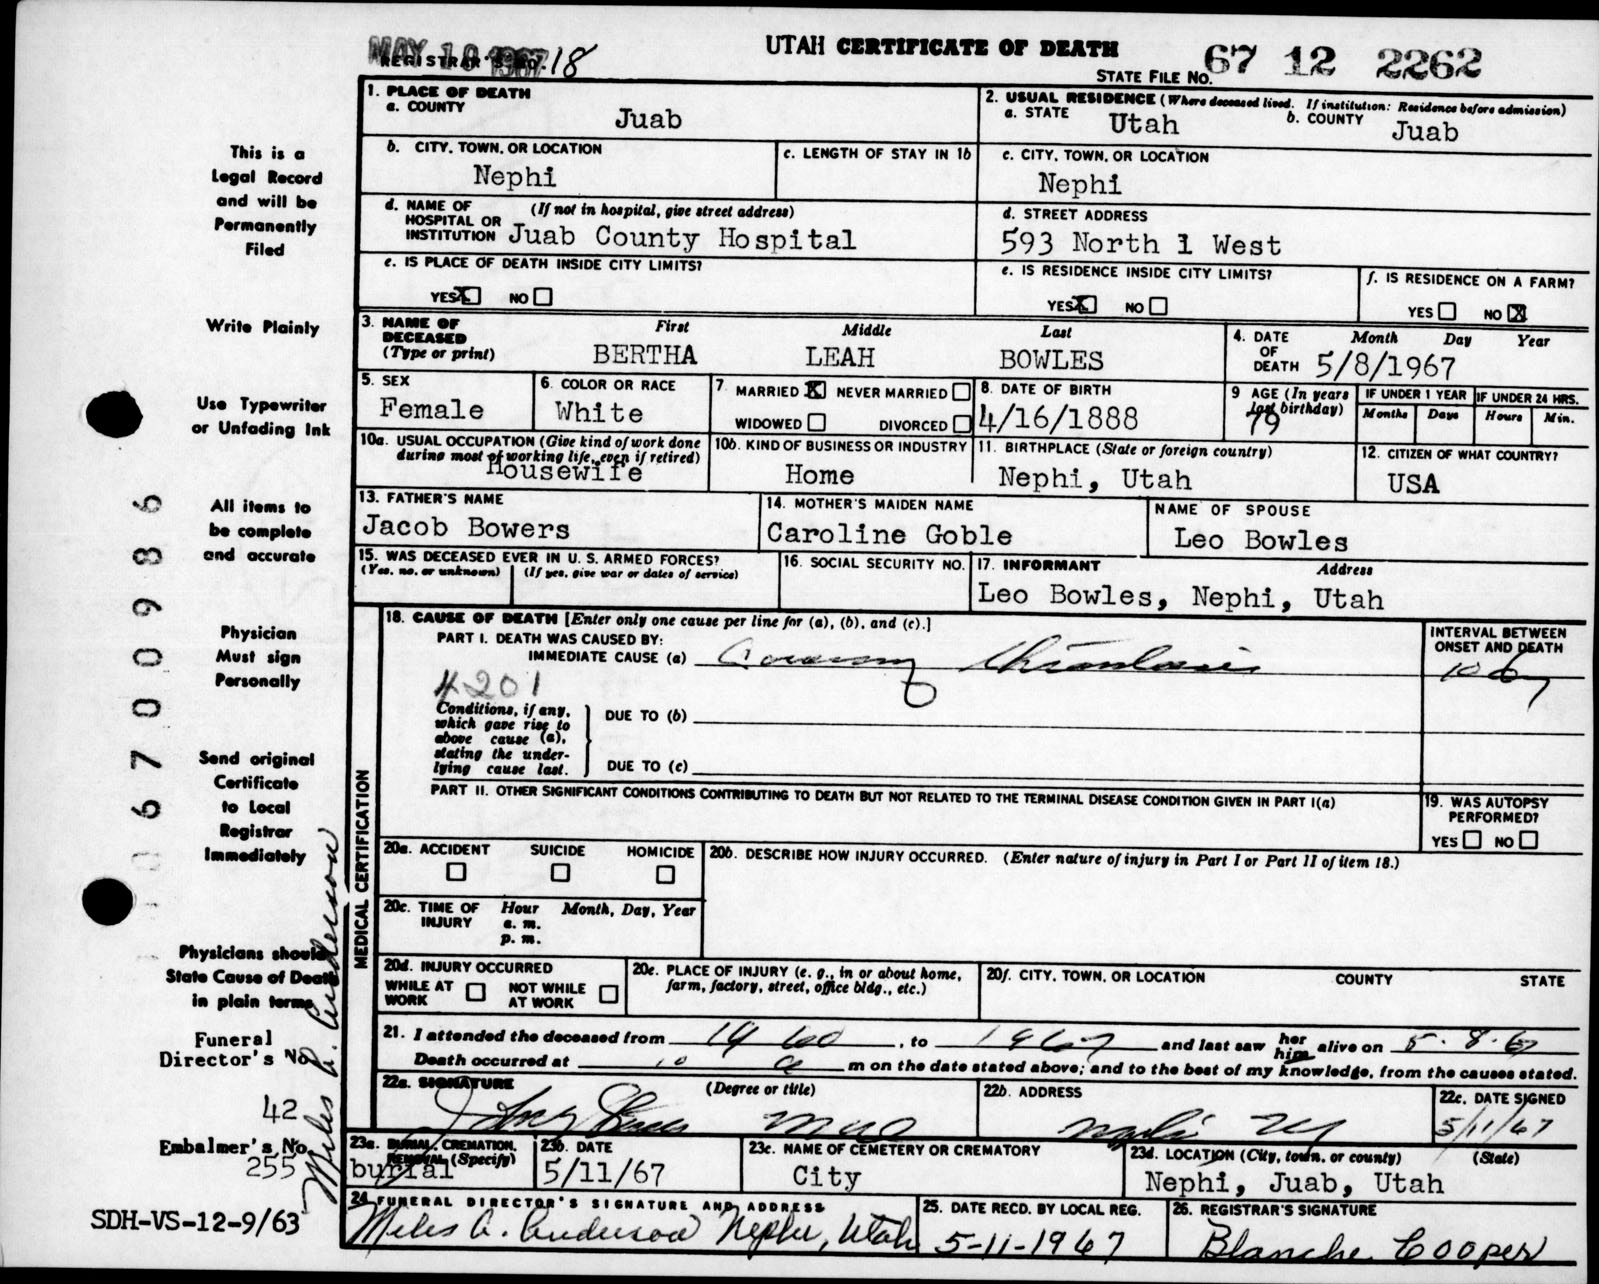 MAY 18 1967
REGISTRAR'S NO. 18
UTAH CERTIFICATE OF DEATH
STATE FILE NO. 67 12 2262
1. PLACE OF DEATH
a. COUNTY
Juab
2. USUAL RESIDENCE (Where deceased lived. If institution: Residence before admission)
a. STATE
Utah
b. COUNTY
Juab
b. CITY, TOWN, OR LOCATION
Nephi
c. LENGTH OF STAY IN 1b
c. CITY, TOWN, OR LOCATION
Nephi
d. NAME OF HOSPITAL OR INSTITUTION (If not in hospital, give street address)
Juab County Hospital
d. STREET ADDRESS
593 North 1 West
e. IS PLACE OF DEATH INSIDE CITY LIMITS?
YES X NO
e. IS RESIDENCE INSIDE CITY LIMITS?
YES X NO
f. IS RESIDENCE ON A FARM?
YES NO X
3. NAME OF DECEASED (Type or print)
First Middle Last
BERTHA LEAH BOWLES
4. DATE OF DEATH Month Day Year
5/8/1967
5. SEX
Female
6. COLOR OR RACE
White
7. MARRIED X NEVER MARRIED
WIDOWED DIVORCED
8. DATE OF BIRTH
4/16/1888
9 AGE (In years last birthday)
79
IF UNDER 1 YEAR IF UNDER 24 HRS.
Months Days Hours Min.
10a. USUAL OCCUPATION (Give kind of work done during most of working life, even if retired)
Housewife
10b. KIND OF BUSINESS OR INDUSTRY
Home
11. BIRTHPLACE (State or foreign country)
Nephi, Utah
12. CITIZEN OF WHAT COUNTRY?
USA
13. FATHER'S NAME
Jacob Bowers
14. MOTHER'S MAIDEN NAME
Caroline Goble
NAME OF SPOUSE
Leo Bowles
15. WAS DECEASED EVER IN U. S. ARMED FORCES?
(Yes, no, or unknown) (If yes, give war or dates of service)
16. SOCIAL SECURITY NO.
17. INFORMANT Address
Leo Bowles, Nephi, Utah
MEDICAL CERTIFICATION
18. CAUSE OF DEATH [Enter only one cause per line for (a), (b), and (c).]
PART I. DEATH WAS CAUSED BY:
IMMEDIATE CAUSE (a) Coronary Thrombosis
INTERVAL BETWEEN ONSET AND DEATH
4201
Conditions, if any, which gave rise to above cause (a), stating the underlying cause last.
DUE TO (b)
DUE TO (c)
PART II. OTHER SIGNIFICANT CONDITIONS CONTRIBUTING TO DEATH BUT NOT RELATED TO THE TERMINAL DISEASE CONDITION GIVEN IN PART I(a)
19. WAS AUTOPSY PERFORMED?
YES NO
20a. ACCIDENT SUICIDE HOMICIDE
20b. DESCRIBE HOW INJURY OCCURRED. (Enter nature of injury in Part I or Part II of item 18.)
20c. TIME OF INJURY Hour Month, Day, Year
a. m.
p. m.
20d. INJURY OCCURRED
WHILE AT WORK NOT WHILE AT WORK
20e. PLACE OF INJURY (e. g., in or about home, farm, factory, street, office bldg., etc.)
20f. CITY, TOWN, OR LOCATION COUNTY STATE
21. I attended the deceased from 1960, to 1967 and last saw her him alive on 5-8-67
Death occurred at 10 a m on the date stated above; and to the best of my knowledge, from the causes stated.
22a. SIGNATURE (Degree or title)
22b. ADDRESS
Nephi Ut
22c. DATE SIGNED
5/11/67
23a. BURIAL, CREMATION, REMOVAL (Specify)
burial
23b. DATE
5/11/67
23c. NAME OF CEMETERY OR CREMATORY
City
23d. LOCATION (City, town, or county) (State)
Nephi, Juab, Utah
24 FUNERAL DIRECTOR'S SIGNATURE AND ADDRESS
Miles A. Anderson Nephi, Utah
25. DATE RECD. BY LOCAL REG.
5-11-1967
26. REGISTRAR'S SIGNATURE
Blanche Cooper
This is a
Legal Record
and will be
Permanently
Filed
Write Plainly
Use Typewriter
or Unfading Ink
All items to
be complete
and accurate
Physician
Must sign
Personally
Send original
Certificate
to Local
Registrar
Immediately
Physicians should
State Cause of Death
in plain terms
Funeral
Director's No
42
Embalmer's No.
255
SDH-VS-12-9/63
Miles A. Anderson
6700986